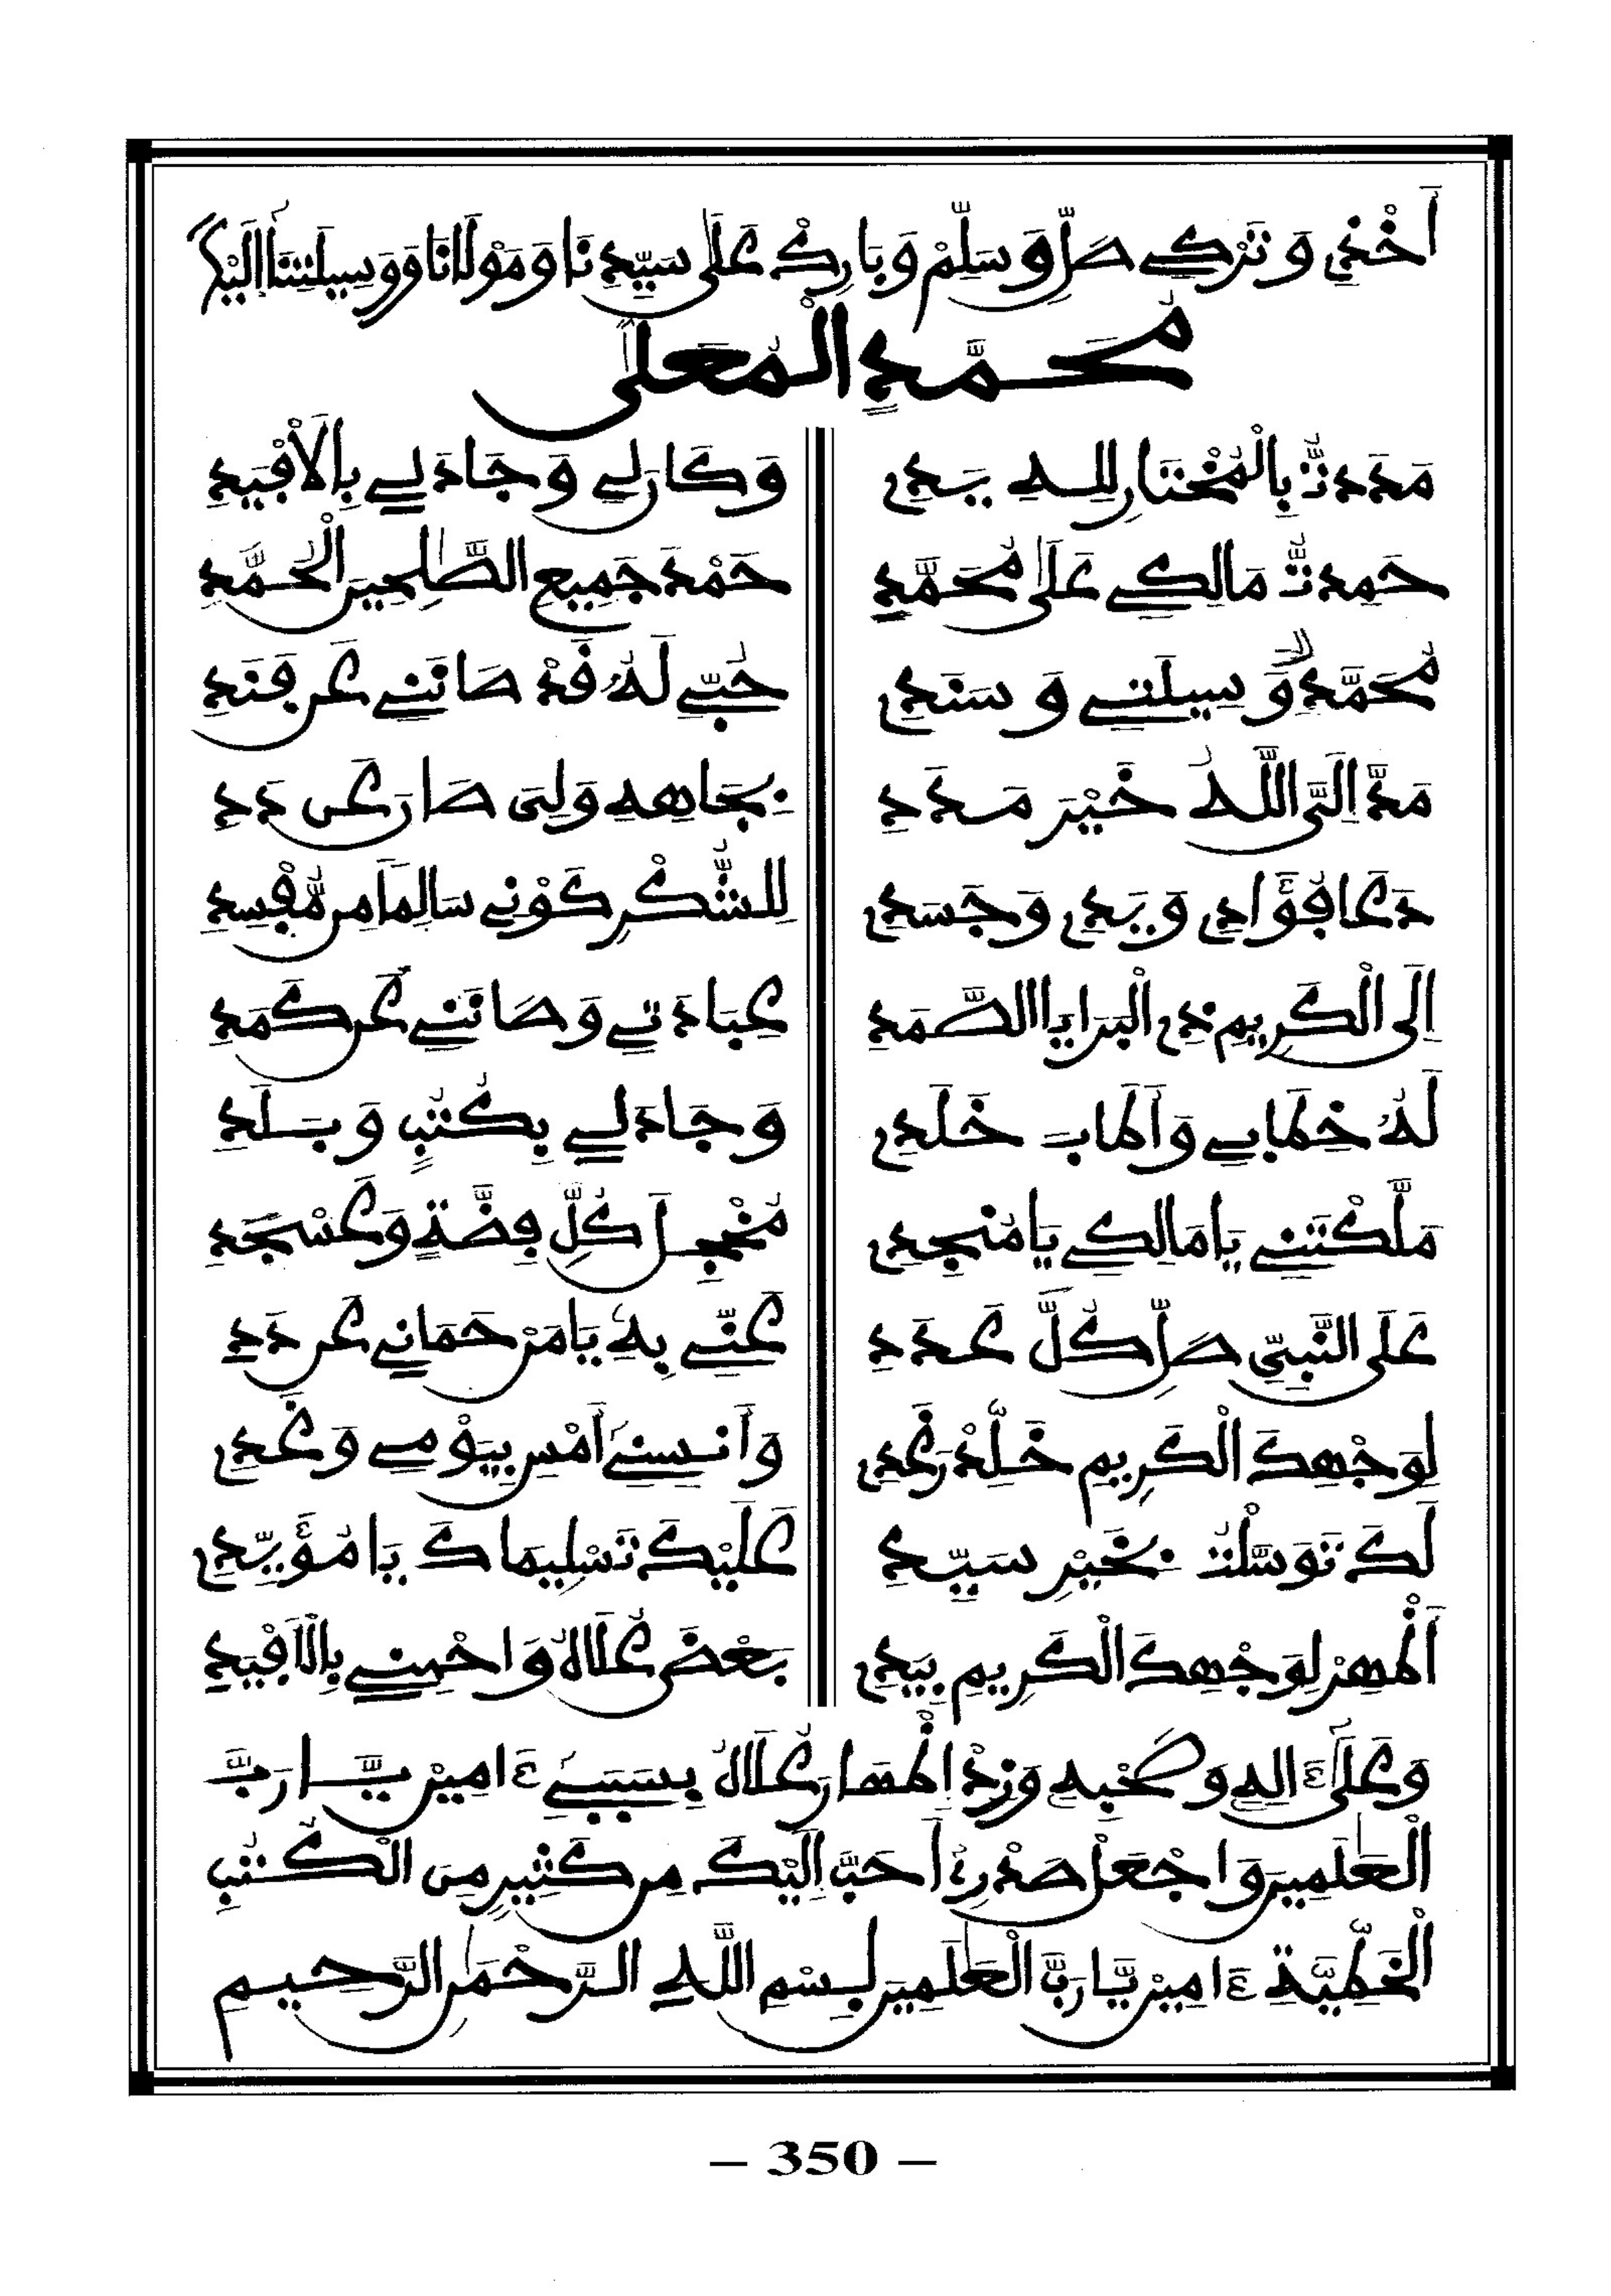 أَخْذِي وَتَرْكِي صَلِّ وَسَلِّمْ وَبَارِكْ عَلَى سَيِّدِنَا وَمَوْلَانَا وَوَسِيلَتِنَا إِلَيْكَ
مُحَمَّدٍ الْمُعَلَّى
مَدَدتُّ بِالْمُخْتَارِ لِلَّهِ يَدِي وَكَانَ لِي وَجَادَ لِي بِالْأَفْيَدِ
حَمِدتُّ مَالِكِي عَلَى مُحَمَّدِ حَمْدَ جَمِيعِ الصَّالِحِينَ الْحُمَّدِ
مُحَمَّدٌ وَسِيلَتِي وَسَنَدِي حُبِّي لَهُ قَدْ صَانَنِي عَن فَنَدِ
مَدَّ إِلَيَّ اللَّهُ خَيْرَ مَدَدِ بِجَاهِهِ وَلِيَ صَارَ عَن دَدِ
دَعَا فُؤَادِي وَيَدِي وَجَسَدِي لِلشُّكْرِ كَوْنِي سَالِماً مِن مُّفْسِدِ
إِلَى الْكَرِيمِ ذِي الْبَرَايَا الصَّمَدِ عِبَادَتِي وَصَانَنِي عَن كَمَدِ
لَهُ خِطَابِي وَأَطَابَ خَلَدِي وَجَادَ لِي بِكُتُبٍ وَبَلَدِ
مَلَّكْتَنِي يَا مَالِكِي يَا مُنجِدِي مُخْجِلَ كُلِّ فِضَّةٍ وَعَسْجَدِ
عَلَى النَّبِيِّ صَلِّ كُلَّ عَدَدِ عَنِّي بِهِ يَا مَنْ حَمَانِي عَن دَدِ
لِوَجْهِكَ الْكَرِيمِ خَلِّدْ رَغَدِي وَأَنسِنِي أَمْسِ بِيَوْمِي وَغَدِي
لَكَ تَوَسَّلْتُ بِخَيْرِ سَيِّدِ عَلَيْكَ تَسْلِيمَاكَ يَا مُؤَيِّدِي
أَظْهِرْ لِوَجْهِكَ الْكَرِيمِ بِيَدِي بَعْضَ عُلَاهُ وَاحْمِنِي بِالْأَفْيَدِ
وَعَلَى ءَالِهِ وَصَحْبِهِ وَزِدْ إِظْهَارَ عُلَاهُ بِسَبَبِي ءَامِين يَّا رَبَّ
الْعَالَمِينَ وَاجْعَلْ صَدْرِي أَحَبَّ إِلَيْكَ مِن كَثِيرٍ مِنَ الْكُتُبِ
الْخَطِّيَّةِ ءَامِين يَّا رَبَّ الْعَالَمِينَ بِسْمِ اللَّهِ الرَّحْمَنِ الرَّحِيمِ
– 350 –